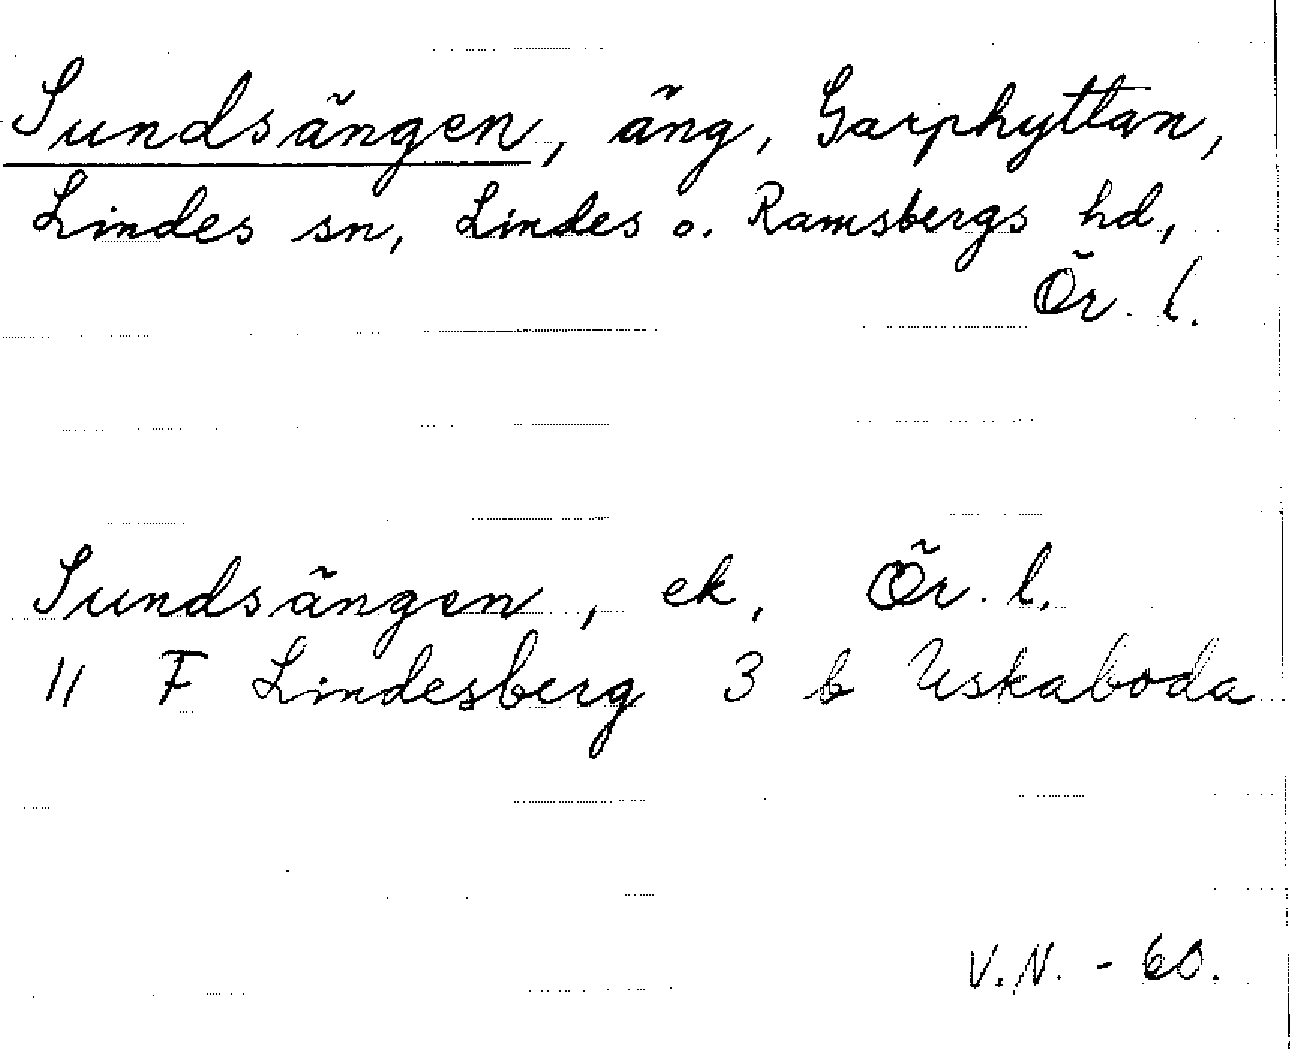 Sundsängen, äng, Garphyttan,
Lindes sn, Lindes o. Ramsbergs hd,
Ör. l.
Sundsängen, ek, Ör. l.
11 F Lindesberg 3 b Uskaboda
V.N. - 60.